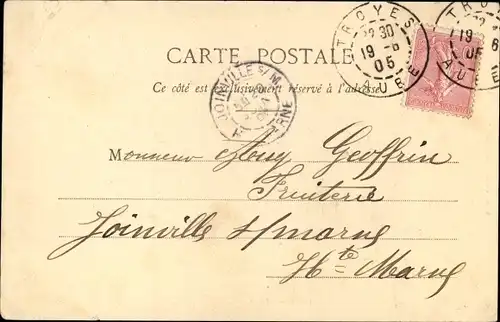 TROYES
22 30
19 -6
05
AUBE
TRO
19
6
05
AU
CARTE POSTALE
Ce côté est exclusivement réservé à l'adresse
JOINVILLE S/ M.
MARNE
Monsieur Geoffrin
Fruiterie
Joinville s/ marne
Hte Marne